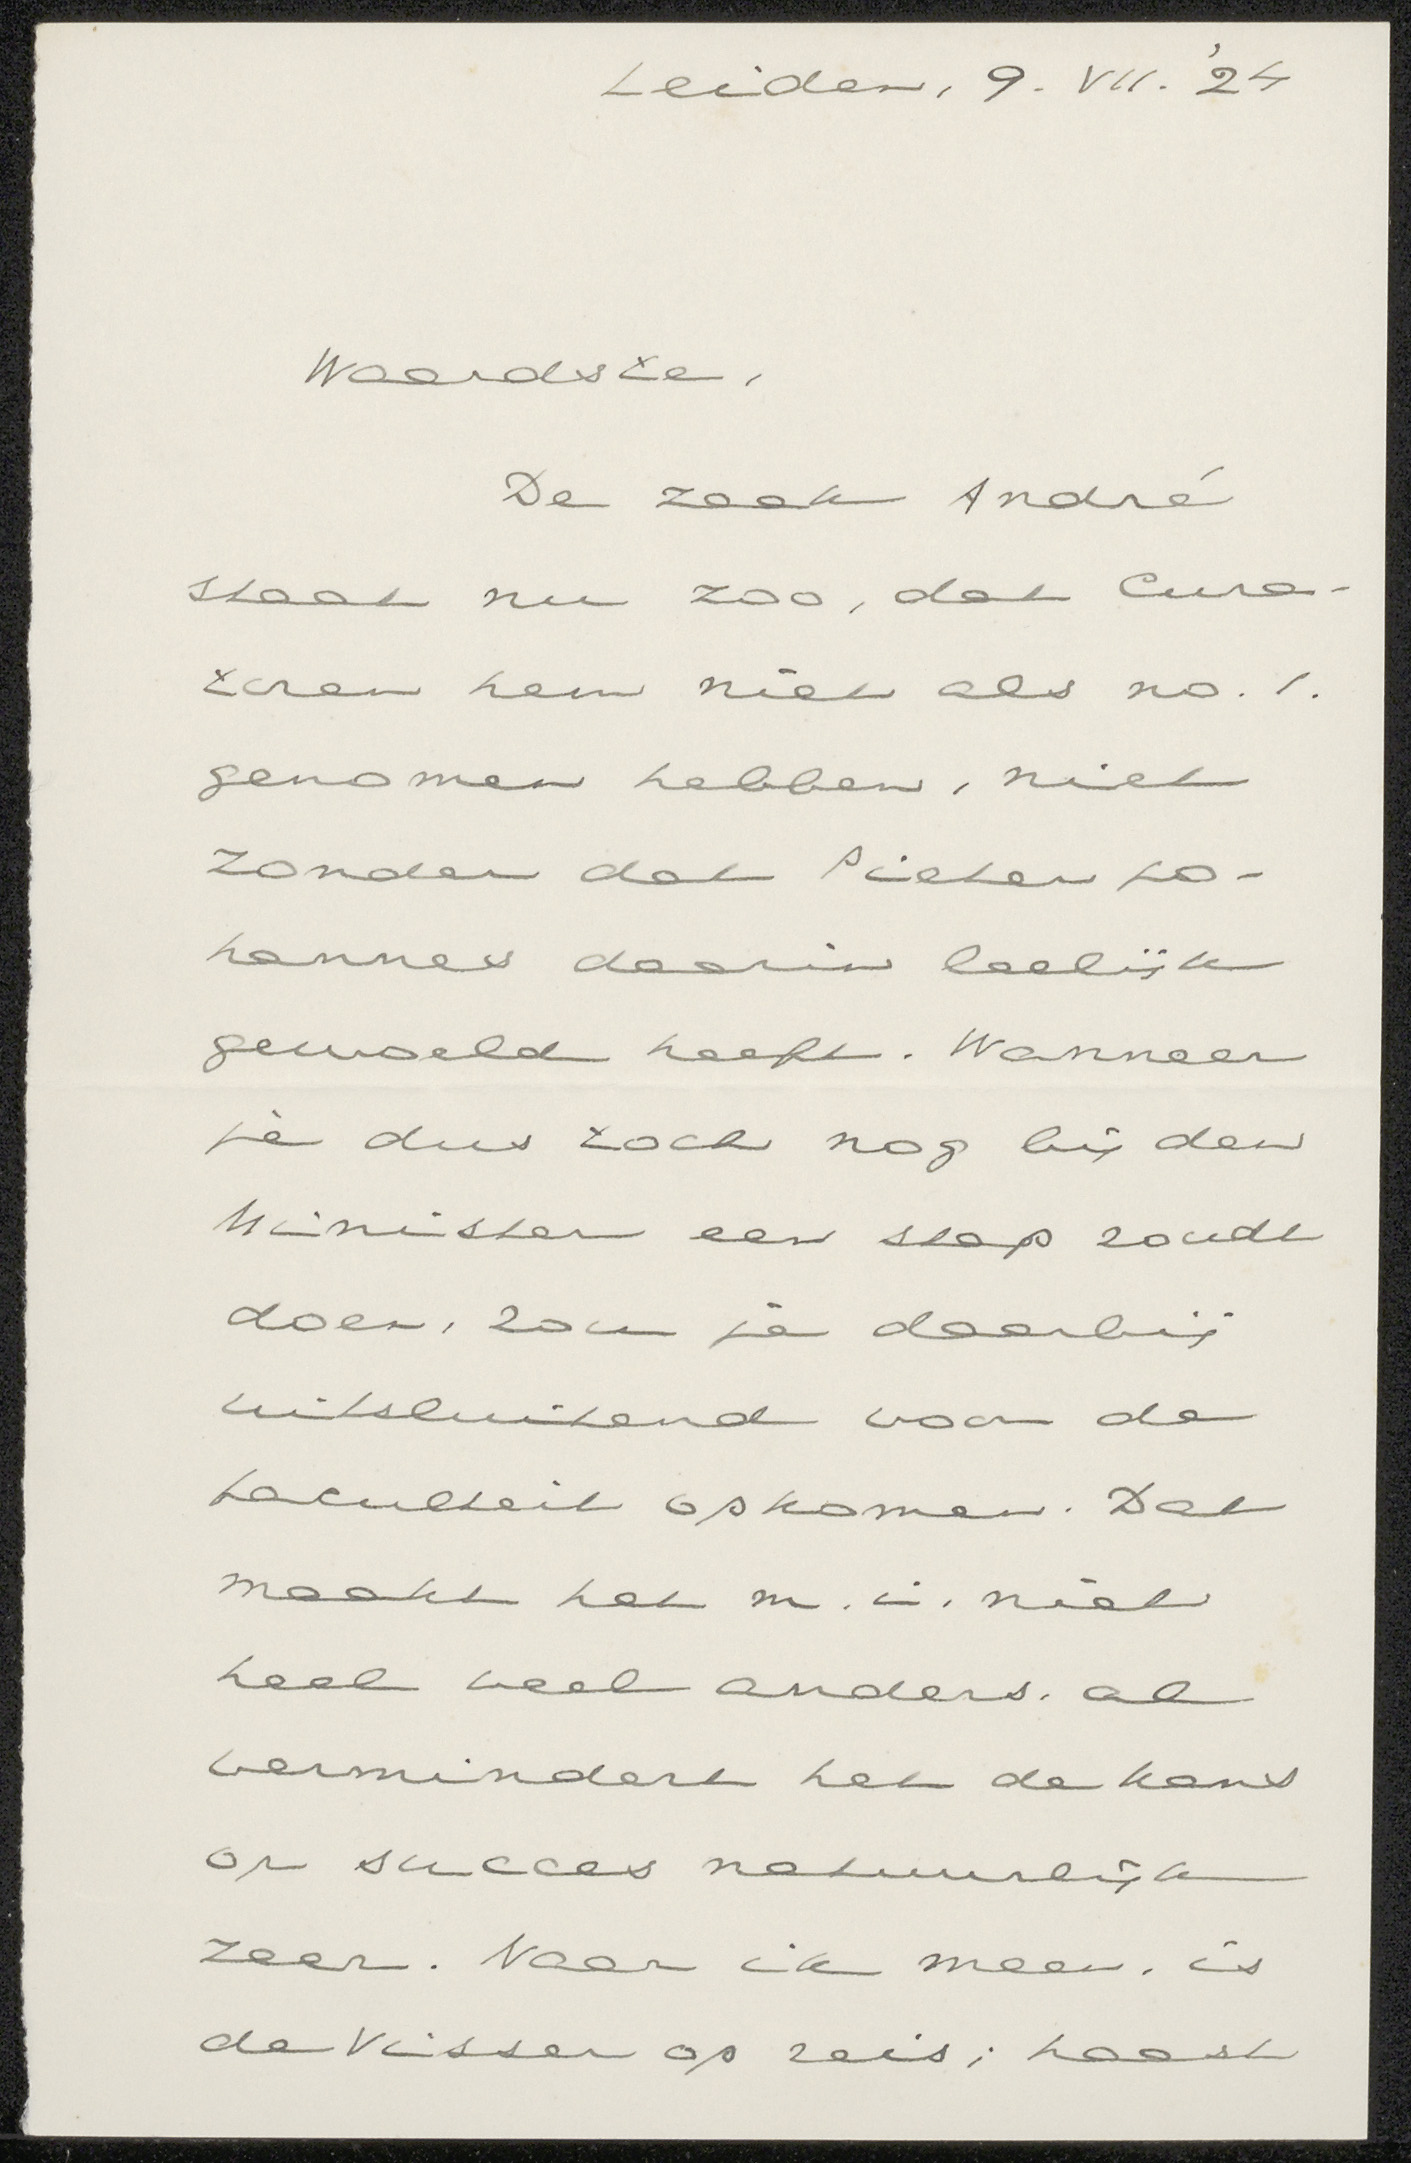 Leiden, 9. VII. '24
Waardste,
De zaak André
staat nu zoo, dat Cura-
toren hem niet als no. 1.
genomen hebben, niet
zonder dat Pieter Jo-
hannes daarin leelijk
gewoeld heeft. Wanneer
je dus toch nog bij den
Minister een stap zoudt
doen, zou je daarbij
uitsluitend voor de
Faculteit opkomen. Dat
maakt het m. i. niet
heel veel anders, al
vermindert het de kans
op succes natuurlijk
zeer. Naar ik meen, is
de Visser op reis; haast